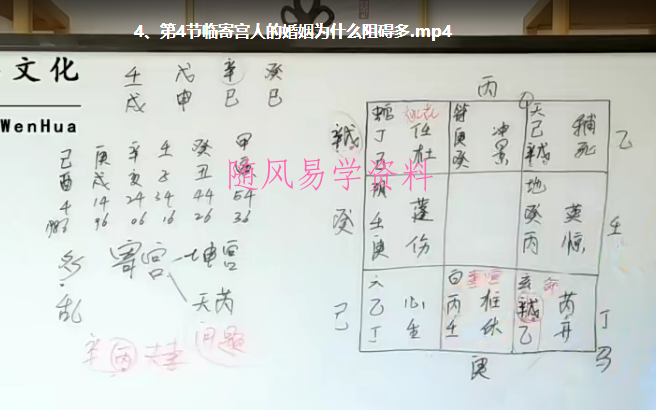 4、第4节临寄宫人的婚姻为什么阻碍多.mp4
文化
WenHua
壬 戊 辛 癸
戌 申 巳 巳
己 庚 辛 壬 癸 甲
酉 戌 亥 子 丑
4 14 24 34 44 54
1986 96 06 16 26 36
随风易学资料
多 寄宫 坤宫
乱 天芮
辛 丙 问题
丙
任 符 庚 冲 天 己 辅 乙
丁 杜 癸 景 死
癸 壬 蓬 地 癸 英 壬
庚 伤 丙 惊
己 六 乙 心 白 丙 柱 玄 芮 丁
丁 生 壬 休 乙 开 马
庚